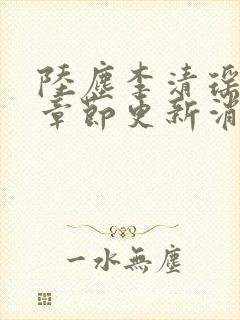 陸塵李清瑶
章節更新消
一水無塵